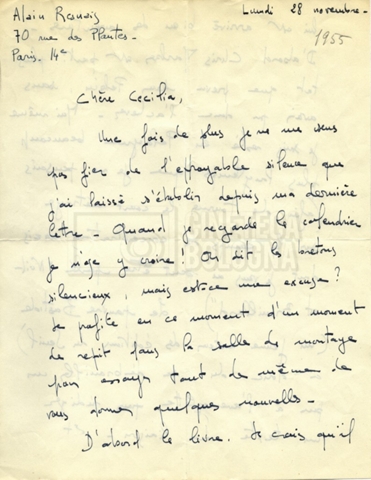 Alain Resnais
70 rue des Plantes.
Paris. 14e
Lundi 28 novembre.
1955
Chère Cecilia,
Une fois de plus je ne me sens
pas fier de l'effroyable silence que
j'ai laissé s'établir depuis ma dernière
lettre. Quand je regarde le calendrier
je n'ose y croire! On dit les bretons
silencieux, mais est-ce une excuse?
Je profite en ce moment d'un moment
de répit dans la salle de montage
pour essayer tout de même de
vous donner quelques nouvelles.
D'abord le livre. Je crois qu'il
CINETECA
BOLOGNA